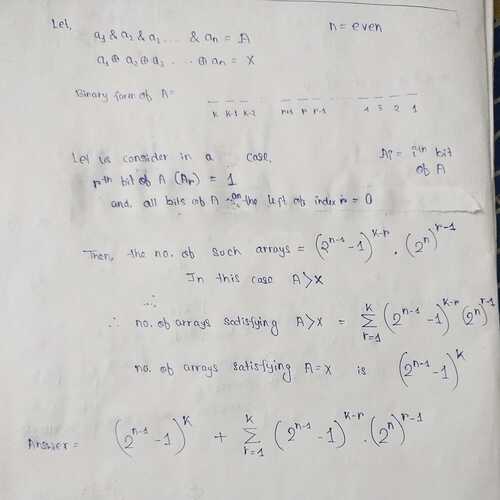 Let,
a₁ & a₂ & a₃ .... & aₙ = A n = even
a₁ ⊕ a₂ ⊕ a₃ .... ⊕ aₙ = X
Binary form of A = _ _ _ _ _ _ _ _ _ _
k k-1 k-2 r+1 r r-1 4 3 2 1
Let us consider in a case, Ai = iᵗʰ bit of A
rᵗʰ bit of A (Aᵣ) = 1
and all bits of A on the left of index r = 0
Then, the no. of such arrays = (2ⁿ⁻¹ - 1)ᵏ⁻ʳ . (2ⁿ)ʳ⁻¹
In this case A > X
∴
∴ no. of arrays satisfying A > X = k Σ r=1 (2ⁿ⁻¹ - 1)ᵏ⁻ʳ (2ⁿ)ʳ⁻¹
no. of arrays satisfying A = X is (2ⁿ⁻¹ - 1)ᵏ
Answer = (2ⁿ⁻¹ - 1)ᵏ + k Σ r=1 (2ⁿ⁻¹ - 1)ᵏ⁻ʳ . (2ⁿ)ʳ⁻¹